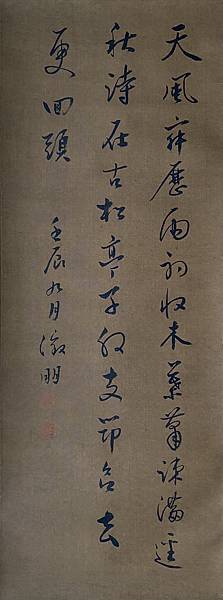 天風寂歷雨初收木葉蕭疎滿逕
秋詩在古松亭子外支筇欲去
更回頭
壬辰九月徵明